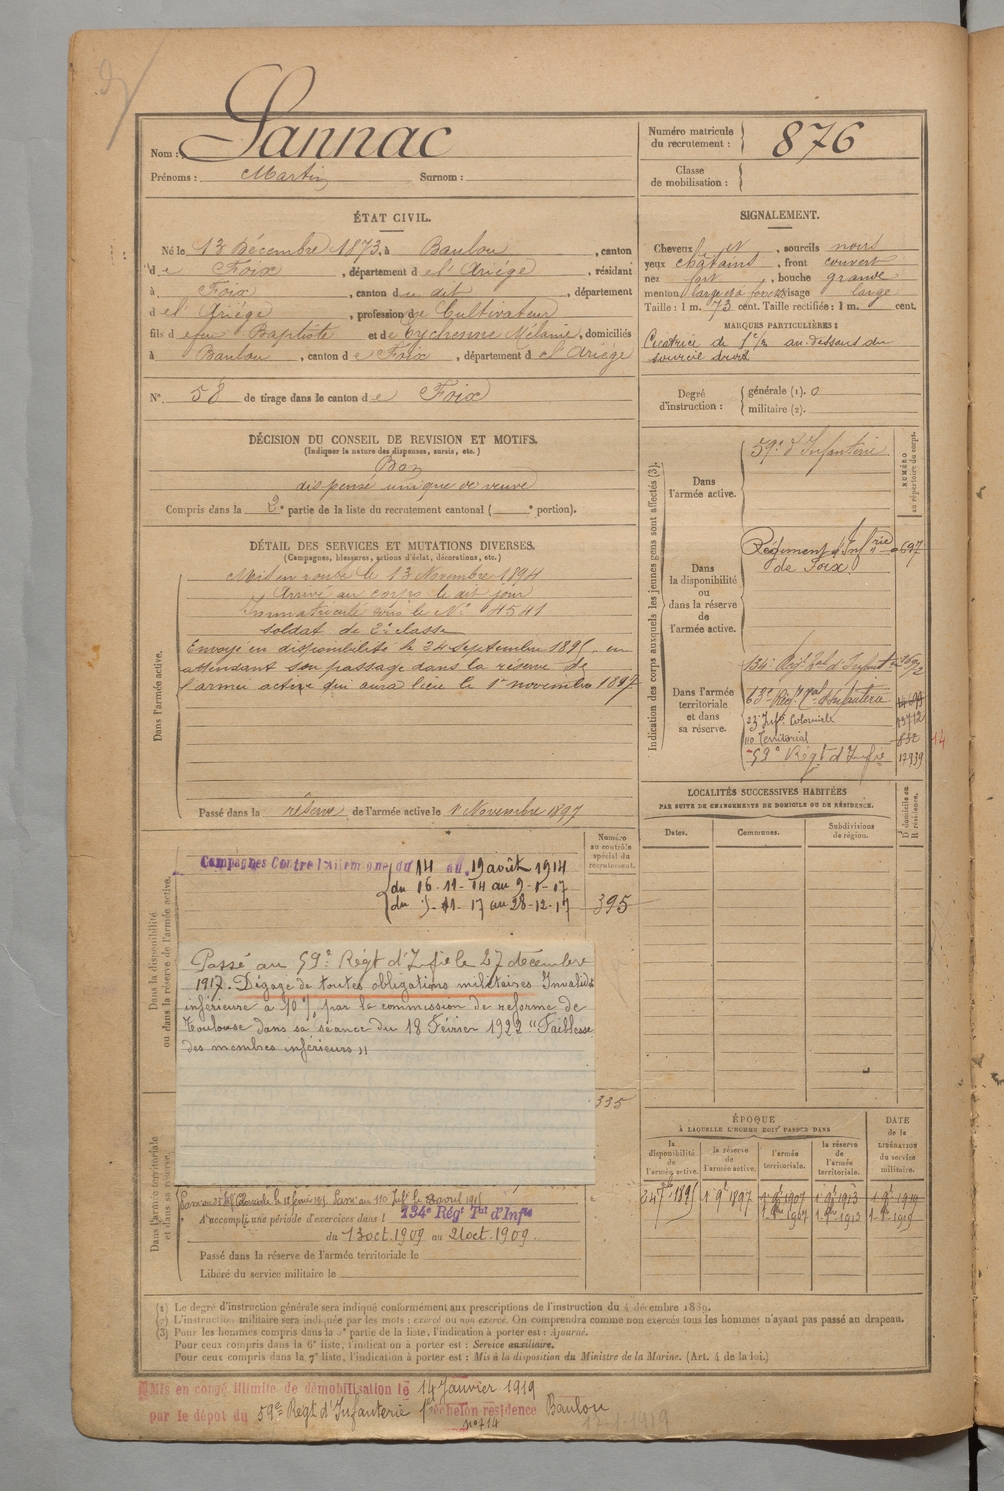 Nom : Lannac
Prénoms : Martin Surnom :
Numéro matricule du recrutement : 876
Classe de mobilisation :
ÉTAT CIVIL.
Né le 13 Décembre 1873, à Baulou, canton
de Foix, département de l'Ariége, résidant
à Foix, canton du dit, département
de l'Ariége, profession de Cultivateur
fils de feu Baptiste et de Eychenne Mélanie, domiciliés
à Baulou, canton de Foix, département de l'Ariége
N° 58 de tirage dans le canton de Foix
SIGNALEMENT.
Cheveux et, sourcils noirs
yeux châtains, front couvert
nez fort, bouche grande
menton large et à fossette visage large
Taille : 1 m. 73 cent. Taille rectifiée : 1 m. cent.
MARQUES PARTICULIÈRES :
Cicatrice de au-dessus du
sourcil droit
Degré d'instruction : générale (1). 0
militaire (2).
DÉCISION DU CONSEIL DE REVISION ET MOTIFS.
(Indiquer la nature des dispenses, sursis, etc.)
Bon
dispensé unique de veuve
Compris dans la 2e partie de la liste du recrutement cantonal ( e portion).
DÉTAIL DES SERVICES ET MUTATIONS DIVERSES.
(Campagnes, blessures, actions d'éclat, décorations, etc.)
Dans l'armée active.
Mis en route le 13 Novembre 1894
Arrivé au corps le dit jour
Immatriculé sous le N° 4541
soldat de 2e classe
Envoyé en disponibilité le 24 septembre 1895, en
attendant son passage dans la réserve de
l'armée active qui aura lieu le 1er novembre 1897
Passé dans la réserve de l'armée active le 1 Novembre 1897
Indication des corps auxquels les jeunes gens sont affectés (3).
NUMÉRO au répertoire du corps.
Dans l'armée active.
59e d'Infanterie
Dans la disponibilité ou dans la réserve de l'armée active.
Régiment d'Infrie 697
de Foix
Dans l'armée territoriale et dans sa réserve.
134e Régt Tal d'Infant
63e Régt Tal d'Infanterie
23 Infie Coloniale 13712
110 Territorial 832
59e Régt d'Infie 17939
14
LOCALITÉS SUCCESSIVES HABITÉES
PAR SUITE DE CHANGEMENTS DE DOMICILE OU DE RÉSIDENCE.
D domicile ou R résidence.
Dates. Communes. Subdivisions de région.
Numéro au contrôle spécial du recrutement.
Dans la disponibilité ou dans la réserve de l'armée active.
Campagnes Contre l'Allemagne du 14 au 19 août 1914
du 16-11-14 au 9-1-17
du 5-11-17 au 28-12-17
395
Passé au 59e Régt d'Infie le 27 décembre
1917. Dégagé de toutes obligations militaires Invalidité
inférieure à 10 % par la commission de réforme de
Toulouse dans sa séance du 18 Février 1922 "Faiblesse
des membres inférieurs"
335
Dans l'armée territoriale et dans sa réserve.
Passé au 23 Infie Coloniale le 12 février 1915 Passé au 110 Infie le 8 avril 1915
A accompli une période d'exercices dans l 134e Régt Tal d'Infie
du 13 oct. 1909 au 21 oct. 1909.
Passé dans la réserve de l'armée territoriale le
Libéré du service militaire le
ÉPOQUE
À LAQUELLE L'HOMME DOIT PASSER DANS
la disponibilité de l'armée active. la réserve de l'armée active. l'armée territoriale. la réserve de l'armée territoriale.
DATE de la LIBÉRATION du service militaire.
24 7bre 1895 1 9bre 1897 1 9bre 1907 1 9bre 1913 1 9bre 1919
1 9bre 1907 1 9bre 1913 1 9bre 1919
(1) Le degré d'instruction générale sera indiqué conformément aux prescriptions de l'instruction du 4 décembre 1889.
(2) L'instruction militaire sera indiquée par les mots : exercé ou non exercé. On comprendra comme non exercés tous les hommes n'ayant pas passé au drapeau.
(3) Pour les hommes compris dans la 5e partie de la liste, l'indication à porter est : Ajourné.
Pour ceux compris dans la 6e liste, l'indication à porter est : Service auxiliaire.
Pour ceux compris dans la 7e liste, l'indication à porter est : Mis à la disposition du Ministre de la Marine. (Art. 4 de la loi.)
Mis en congé illimité de démobilisation le 14 Janvier 1919
par le dépot du 59e Régt d'Infanterie 1er échelon résidence Baulou
n° 714
17-1-1919